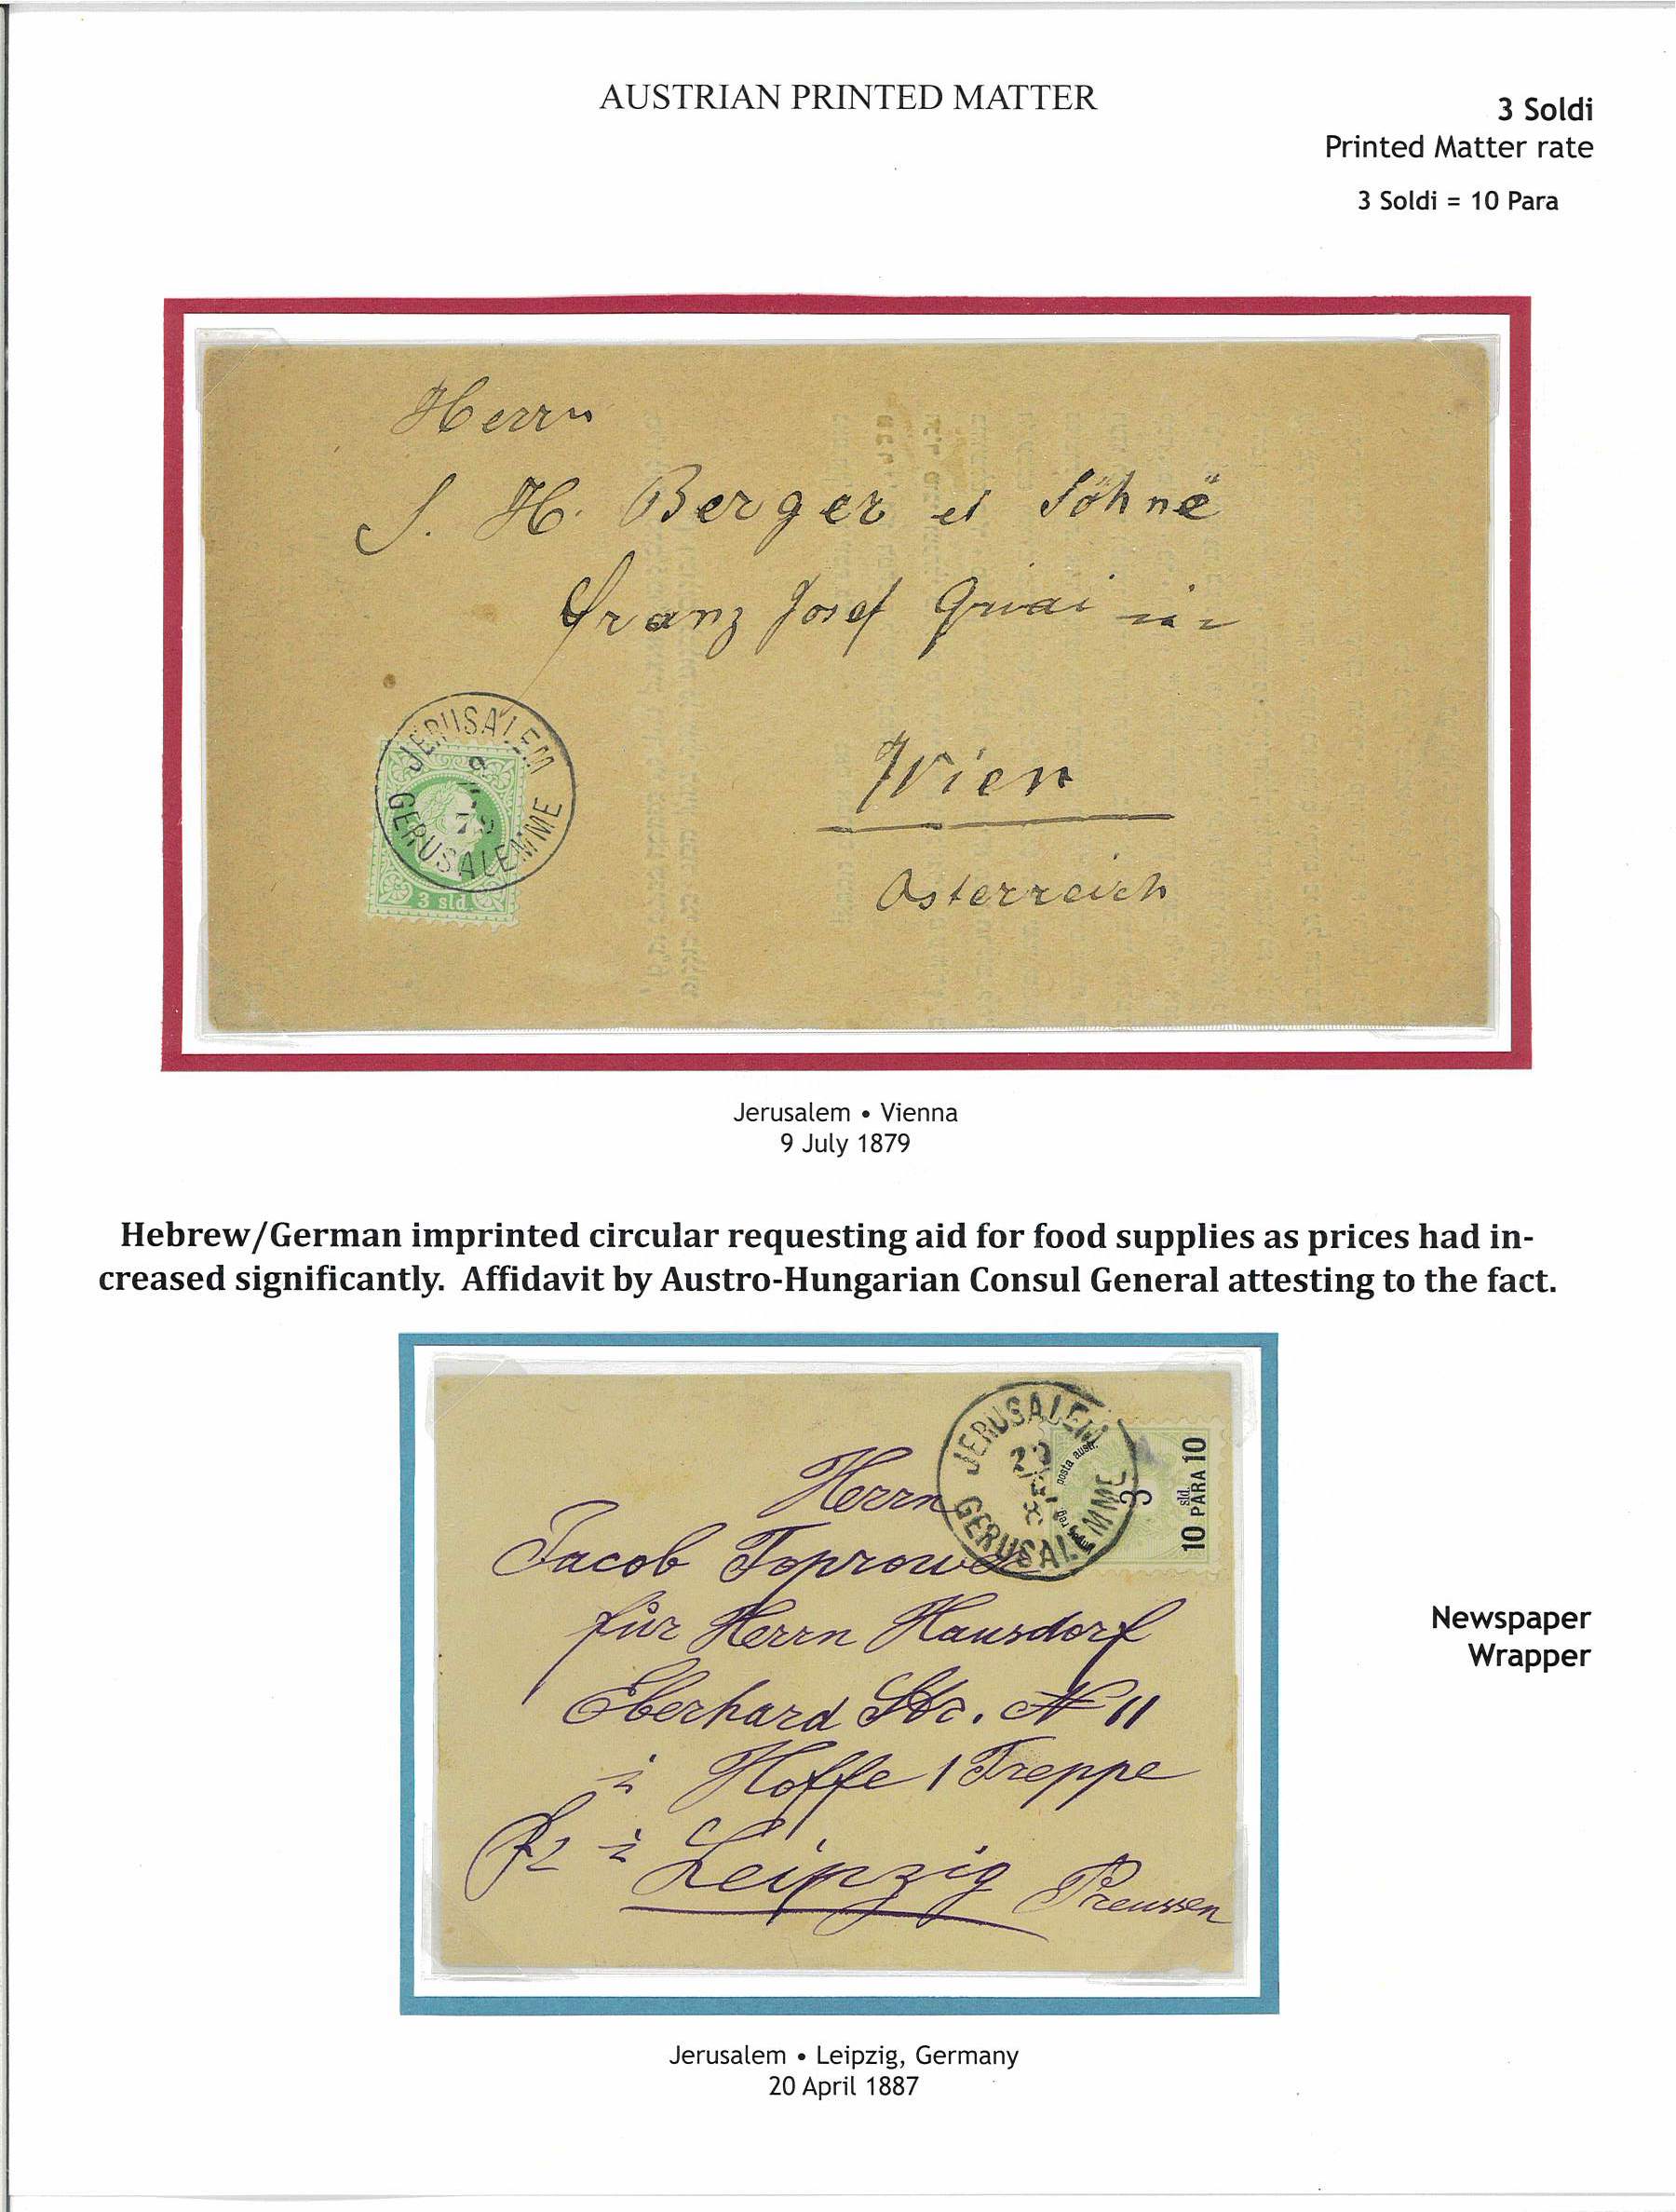 AUSTRIAN PRINTED MATTER
3 Soldi
Printed Matter rate
3 Soldi = 10 Para
Herrn
S. H. Berger et Söhne
Franz Josef Quai in
Wien
Osterreich
JERUSALEM
9
7
79
GERUSALEMME
3 sld.
Jerusalem • Vienna
9 July 1879
Hebrew/German imprinted circular requesting aid for food supplies as prices had in-
creased significantly. Affidavit by Austro-Hungarian Consul General attesting to the fact.
JERUSALEM
GERUSALEMME
posta austr.
3
sld.
10 PARA 10
Herrn
Jacob
für Herrn Hausdorf
Eberhard Str. N 11
i Hoffe 1 Treppe
i Leipzig Preussen
Newspaper
Wrapper
Jerusalem • Leipzig, Germany
20 April 1887